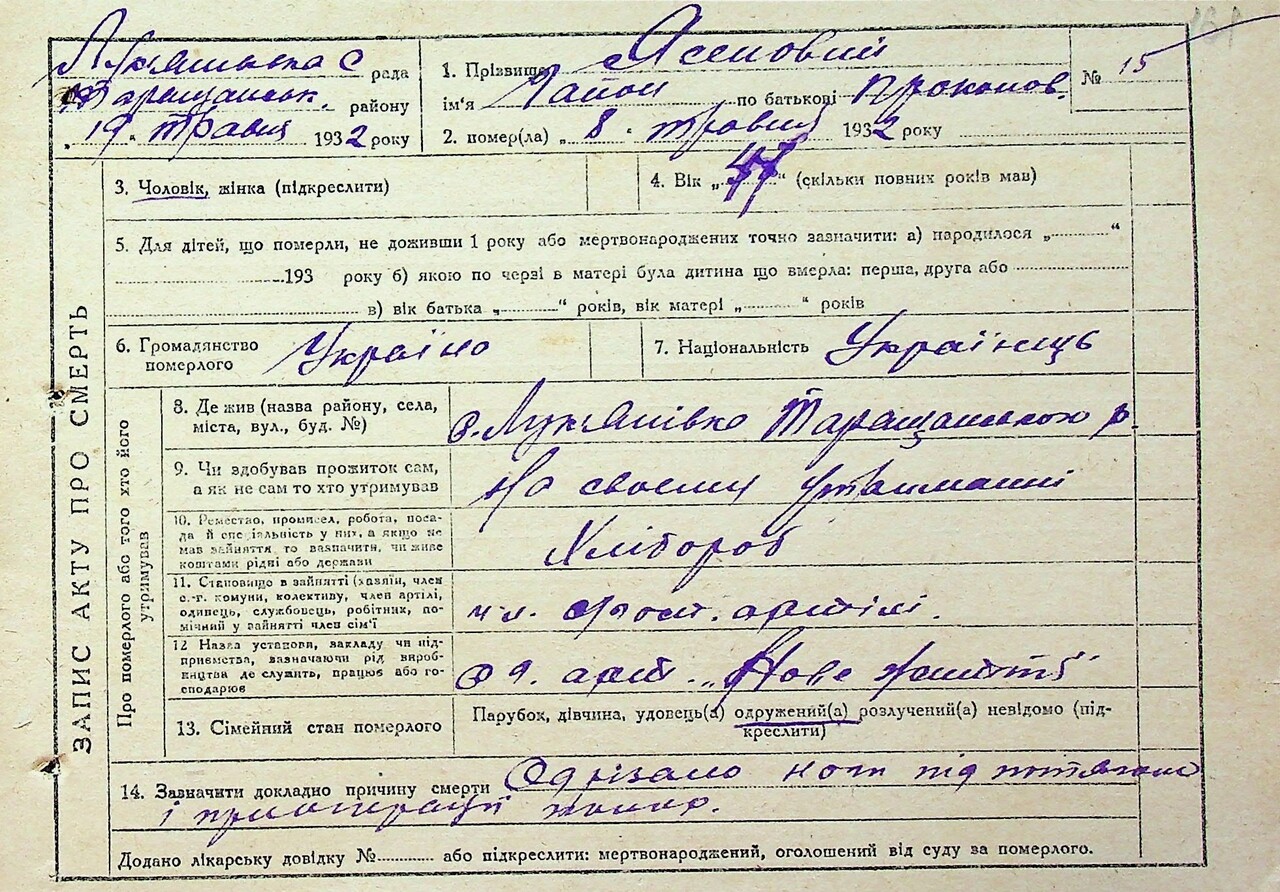 Лукянська С рада
Таращанськ. району
„19“ травня 1932 року
1. Прізвище Ясеновий
ім'я по батькові Прокопов.
2. помер(ла) „8“ травня 1932 року
№ 15
3. Чоловік, жінка (підкреслити)
4. Вік „47“ (скільки повних років мав)
5. Для дітей, що померли, не доживши 1 року або мертвонароджених точно зазначити: а) народилося „ “
193 року б) якою по черзі в матері була дитина що вмерла: перша, друга або
в) вік батька „ “ років, вік матері „ “ років
6. Громадянство
померлого Україно
7. Національність Українець
ЗАПИС АКТУ ПРО СМЕРТЬ
Про померлого або того хто його
утримував
8. Де жив (назва району, села,
міста, вул., буд. №)
с. Лук'янівко Таращанською р
9. Чи здобував прожиток сам,
а як не сам то хто утримував
На своєму утриманні
10. Ремество, промисел, робота, поса-
да й спеціяльність у них, а якщо не
мав зайняття то зазначити, чи живе
коштами рідні або держави
Хлібороб
11. Становище в зайнятті (хазяїн, член
с.-г. комуни, колективу, член артілі,
одинець, службовець, робітник, по-
мічний у зайнятті член сім'ї
чл. артілі.
12 Назва установи, закладу чи під-
приємства, зазначаючи рід вироб-
ництва де служить, працює або го-
сподарює
арт. „Нове Життя“
13. Сімейний стан померлого
Парубок, дівчина, удовець(а) одружений(а) розлучений(а) невідомо (під-
креслити)
14. Зазначити докладно причину смерти Одрізано ноги під потягом
і приоперації помер.
Додано лікарську довідку № або підкреслити: мертвонароджений, оголошений від суду за померлого.